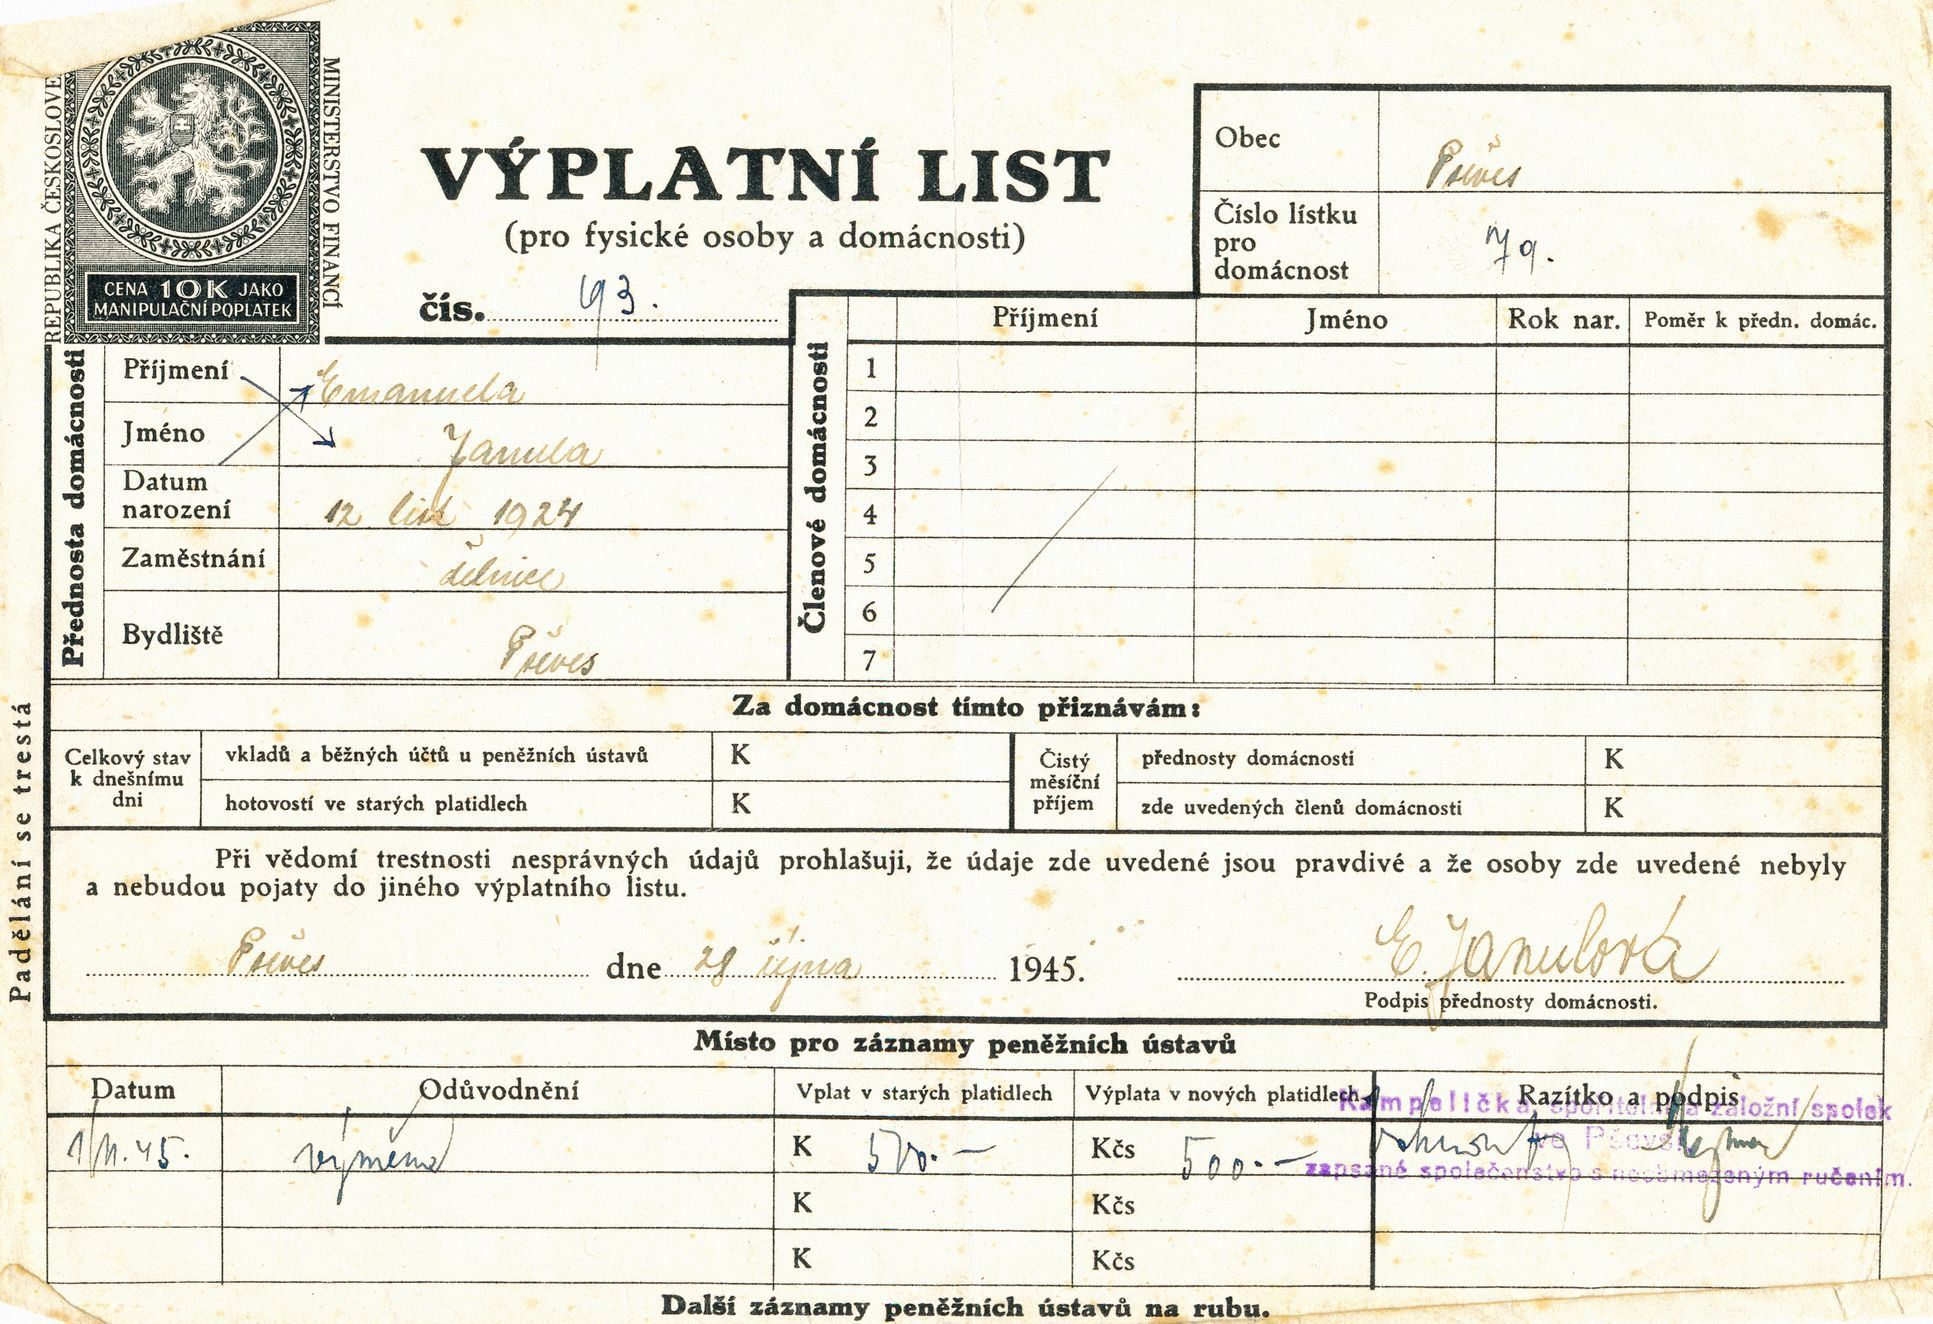 REPUBLIKA ČESKOSLOVE
MINISTERSTVO FINANCÍ
CENA 10K JAKO
MANIPULAČNÍ POPLATEK
VÝPLATNÍ LIST
(pro fysické osoby a domácnosti)
čís. 93.
Obec Pševes
Číslo lístku
pro
domácnost 79.
Přednosta domácnosti
Příjmení Emanuela
Jméno Janula
Datum
narození 12 list 1924
Zaměstnání dělnice
Bydliště Pševes
Členové domácnosti
Příjmení Jméno Rok nar. Poměr k předn. domác.
1
2
3
4
5
6
7
Za domácnost tímto přiznávám:
Celkový stav
k dnešnímu
dni
vkladů a běžných účtů u peněžních ústavů K
hotovostí ve starých platidlech K
Čistý
měsíční
příjem
přednosty domácnosti K
zde uvedených členů domácnosti K
Při vědomí trestnosti nesprávných údajů prohlašuji, že údaje zde uvedené jsou pravdivé a že osoby zde uvedené nebyly
a nebudou pojaty do jiného výplatního listu.
Pševes dne 28 října 1945. E. Janulová
Podpis přednosty domácnosti.
Padělání se trestá
Místo pro záznamy peněžních ústavů
Datum Odůvodnění Vplat v starých platidlech Výplata v nových platidlech Razítko a podpis
1/11.45. výměna K 500.- Kčs 500.-
Kampelička, spořitelní a záložní spolek
ve
zapsané společenstvo s neobmezeným ručením.
K Kčs
K Kčs
Další záznamy peněžních ústavů na rubu.